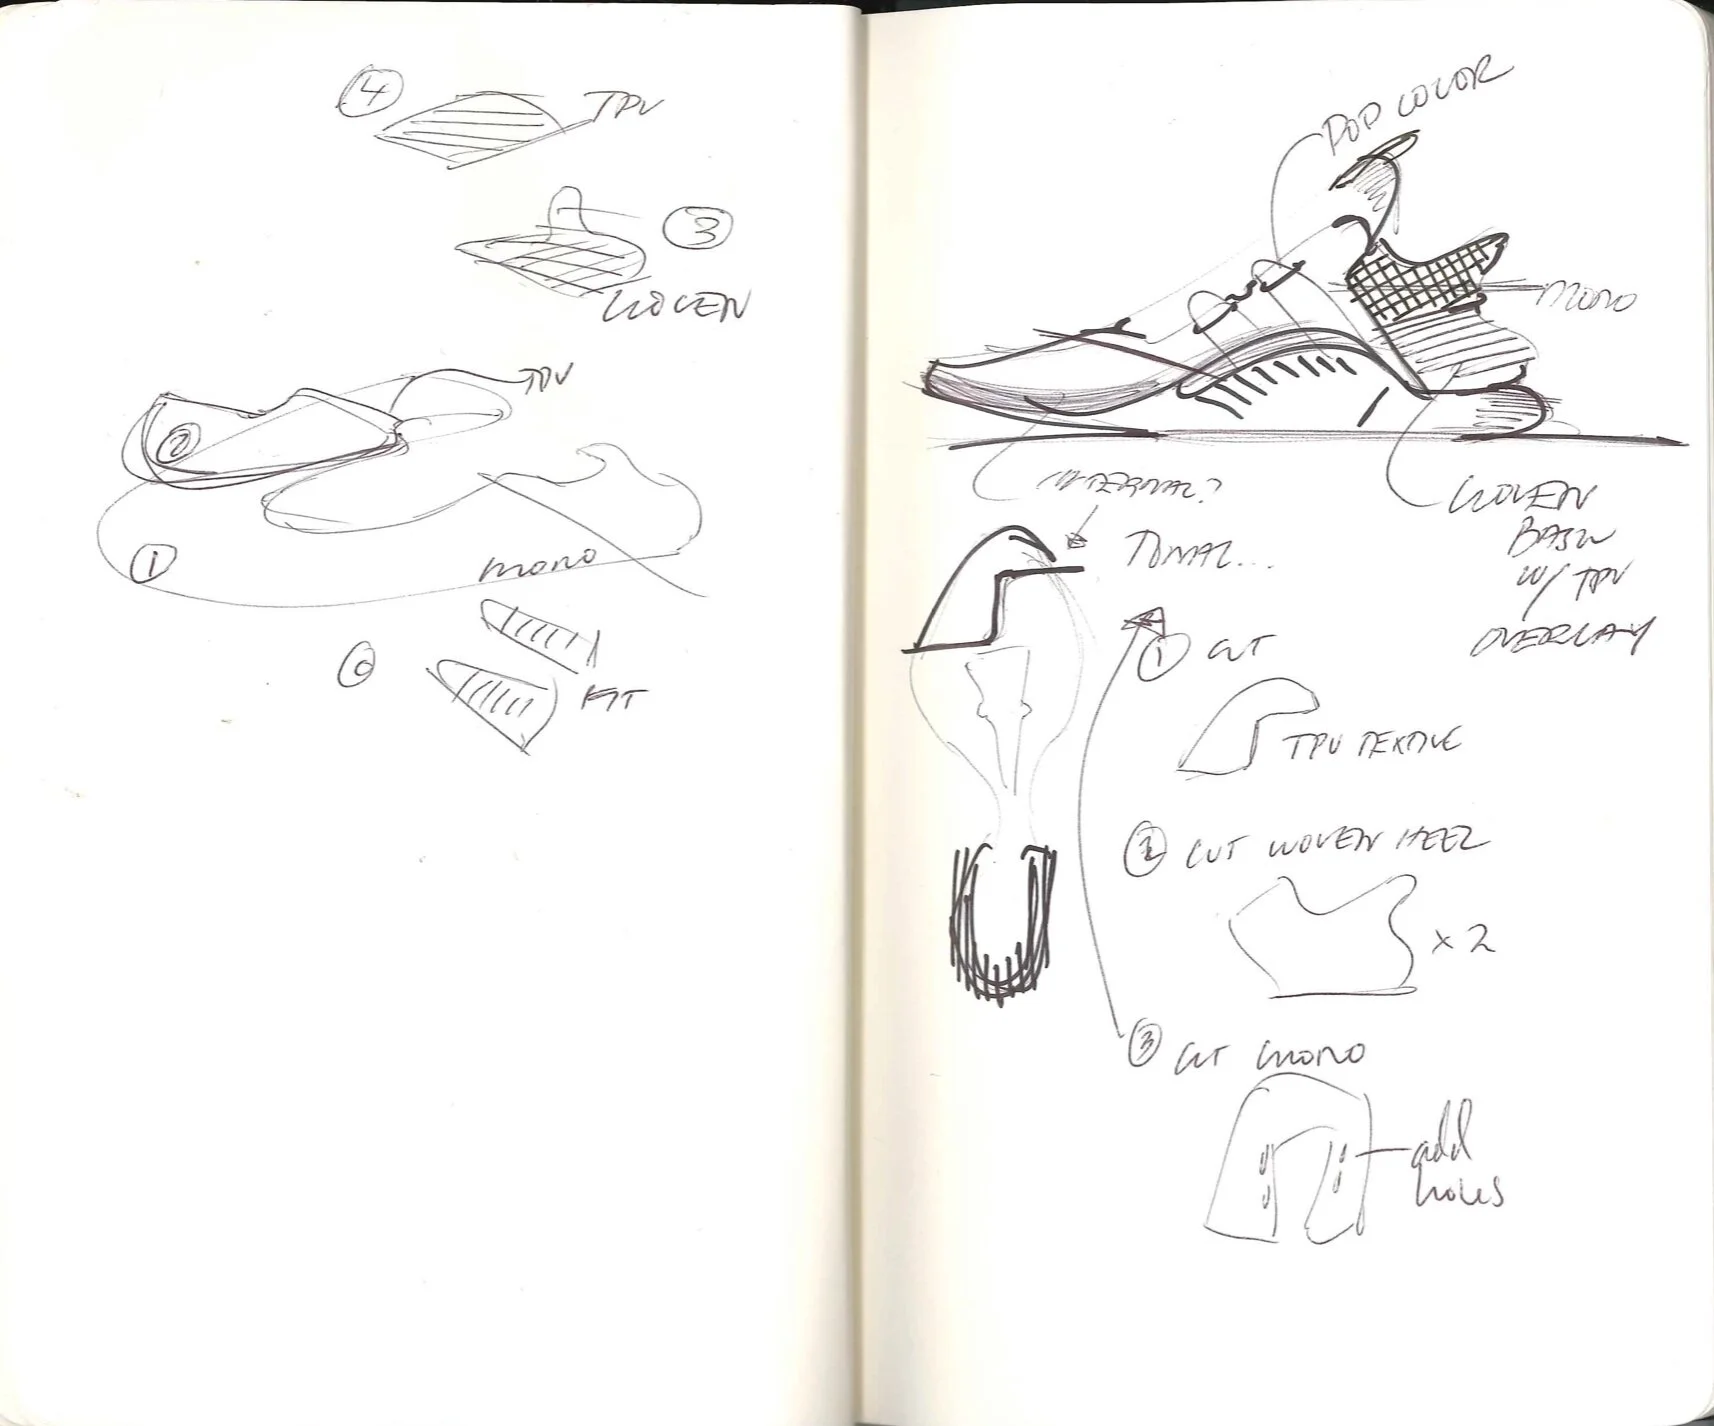 4
TPU
3
WOVEN
TPU
2
1
mono
6
KIT
POP COLOR
MONO
INTERNAL?
TONAL...
WOVEN
BASE
W/ TPU
OVERLAY
1 CUT
TPU TEXTILE
2 CUT WOVEN HEEL
x 2
3 CUT MONO
add
holes